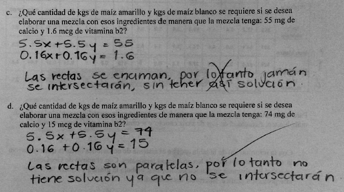 c. ¿Qué cantidad de kgs de maíz amarillo y kgs de maíz blanco se requiere si se desea
elaborar una mezcla con esos ingredientes de manera que la mezcla tenga: 55 mg de
calcio y 1.6 mcg de vitamina b2?
5.5x+5.5y=55
0.16x+0.16y=1.6
Las rectas se enciman, por lo tanto jamán
se intersectarán, sin tener así solución.
d. ¿Qué cantidad de kgs de maíz amarillo y kgs de maíz blanco se requiere si se desea
elaborar una mezcla con esos ingredientes de manera que la mezcla tenga: 74 mg de
calcio y 15 mcg de vitamina b2?
5.5x+5.5y=74
0.16+0.16y=15
Las rectas son paralelas, por lo tanto no
tiene solución ya que no se intersectarán